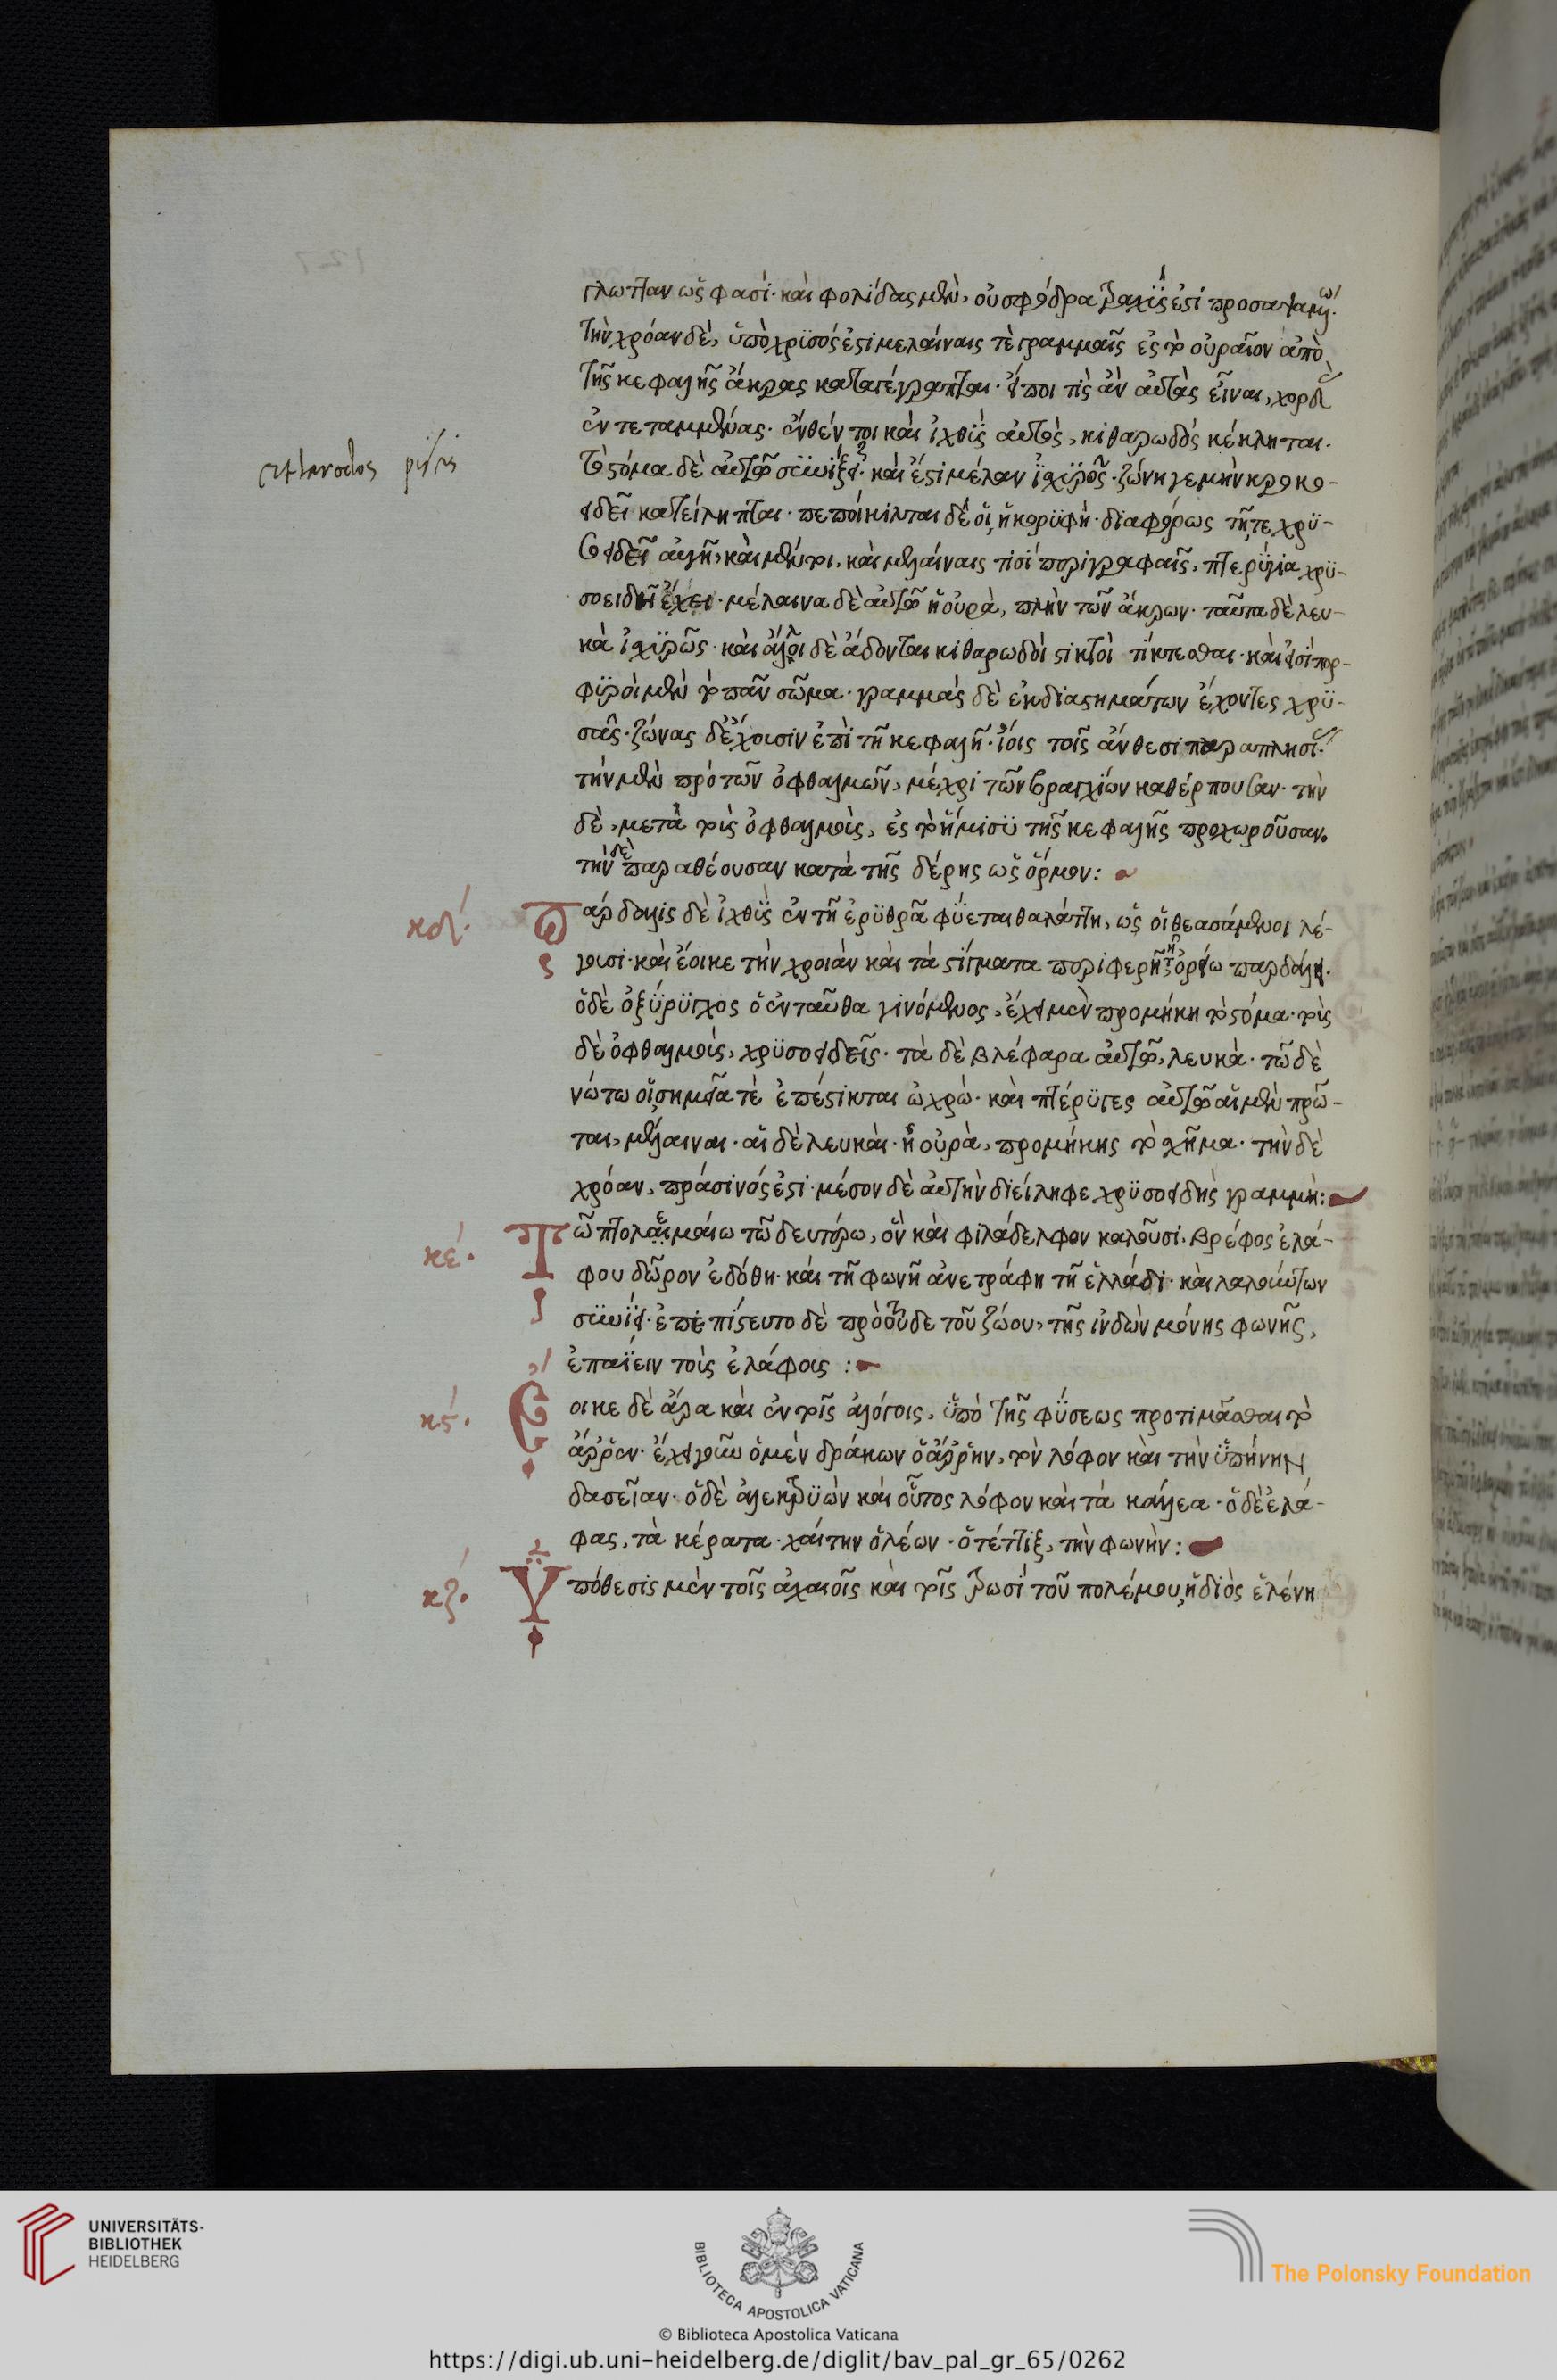 γλωτίαν ὥς φασί· καὶ φολίδας μὲν, οὐ σφόδρα τραχὺς ἐστὶ προσάψασθαι.
τὴν χρόαν δὲ, ὑπόχρυσός ἐστι μελαίναις τὲ γραμμαῖς ἐς τὸ οὐραῖον ἀπὸ
τῆς κεφαλῆς ἄκρας καταγέγραπται· εἴποι τις ἂν αὐτὰς εἶναι, χορδὰς
ἐντεταμμένας· ἔνθέν τοι καὶ ἰχθὺς αὐτὸς, κιθαρωδός κέκληται.
τὸ στόμα δὲ αὐτῷ συνίζει· καὶ ἔστι μέλαν ἰσχυρῶς· ζώνη γεμὴν κροκο-
ειδεῖ κατείληπται· πεποίκιλται δέ οἱ ἡ κορυφή· διαφόρως τῇτε χρυ-
σοειδεῖ αἴγλῃ, καὶ μέντοι, καὶ μελαίναις τισὶ περιγραφαῖς, πτερύγια χρυ-
σοειδῆ ἔχει· μέλαινα δὲ αὐτῷ ἡ οὐρὰ, πλὴν τῶν ἄκρων· ταῦτα δὲ λευ-
κὰ ἰσχυρῶς· καὶ ἄλλοι δὲ ἄδονται κιθαρωδοὶ στικτοὶ τίκτεσθαι· καὶ εἰσὶ πορ-
φυροὶ μὲν τὸ πᾶν σῶμα· γραμμὰς δὲ ἐκ διαστημάτων ἔχοντες χρυ-
σᾶς· ζώνας δἔχουσιν ἐπὶ τῆ κεφαλῆ· ἴοις τοῖς ἄνθεσι παραπλησί-
τὴν μὲν πρὸ τῶν ὀφθαλμῶν, μέχρι τῶν βραγχίων καθέρπουσαν· τὴν
δὲ, μετὰ τοὺς ὀφθαλμοὺς, ἐς τὸ ἥμισυ τῆς κεφαλῆς προχωροῦσαν.
τὴν δὲ παραθέουσαν κατὰ τῆς δέρης ὡς ὅρμον:
κδ΄. Πάρδαλις δὲ ἰχθὺς ἐν τῆ ἐρυθρᾶ φύεται θαλάττη, ὥς οἱ θεασάμενοι λέ-
γουσι· καὶ ἔοικε τὴν χροιὰν καὶ τὰ στίγματα περιφερῆ τῆ ὀρείω παρδάλει.
ὁ δὲ ὀξύρυγχος ὁ ἐνταῦθα γινόμενος, ἔχει μὲν προμήκη τὸ στόμα· τοὺς
δὲ ὀφθαλμοὺς, χρυσοειδεῖς· τὰ δὲ βλέφαρα αὐτῷ, λευκὰ· τῶ δὲ
νώτω οἱ σημεῖα τὲ ἐπέστικται ὠχρὰ· καὶ πτέρυγες αὐτῷ αἱ μὲν πρῶ-
ται, μέλαιναι· αἱ δὲ λευκαὶ· ἡ οὐρὰ, προμήκης τὸ σχῆμα· τὴν δὲ
χρόαν, πράσινός ἐστι· μέσον δὲ αὐτὴν διείληφε χρυσοειδὴς γραμμὴ:
κέ. Τῶ πτολεμαίω τῶ δευτέρω, ὃν καὶ φιλάδελφον καλοῦσι. βρέφος ἐλά-
φου δῶρον ἐδόθη· καὶ τῆ φωνῆ ἀνετράφη τῆ ἑλλάδι· καὶ λαλούντων
συνίει· ἐπεπίστευτο δὲ πρὸ τοῦδε τοῦ ζώου, τῆς ἰνδῶν μόνης φωνῆς,
ἐπαΐειν τοὺς ἐλάφους:
κϛ΄. Ἔοικε δὲ ἄρα καὶ ἐν τοῖς ἀλόγοις, ὑπὸ τῆς φύσεως προτιμᾶσθαι τὸ
ἄρρεν· ἔχει γοῦν ὁ μὲν δράκων ὁ ἄρρην, τὸν λόφον καὶ τὴν ὑπήνην
δασεῖαν· ὁ δὲ ἀλεκτρυὼν καὶ οὗτος λόφον καὶ τὰ κάλλεα· ὁ δὲ ἐλά-
φας, τὰ κέρατα· χαίτην ὁ λέων· ὁ τέττιξ, τὴν φωνὴν:
κζ΄. Ὑπόθεσις μὲν τοῖς ἀχαιοῖς καὶ τοῖς τρωσὶ τοῦ πολέμου, ἡ διὸς ἑλένη
UNIVERSITÄTS-
BIBLIOTHEK
HEIDELBERG
BIBLIOTECA APOSTOLICA VATICANA
The Polonsky Foundation
© Biblioteca Apostolica Vaticana
https://digi.ub.uni-heidelberg.de/diglit/bav_pal_gr_65/0262